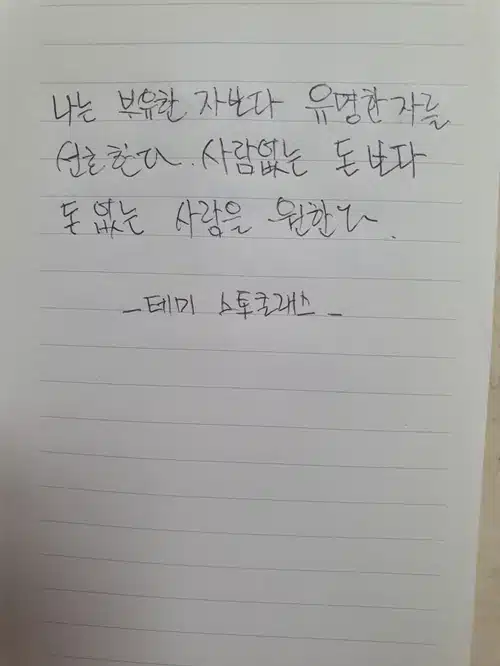 나는 부유한 자보다 유명한 자를
선호한다. 사람없는 돈보다
돈 없는 사람을 원한다.
- 테미 스토클래스 -